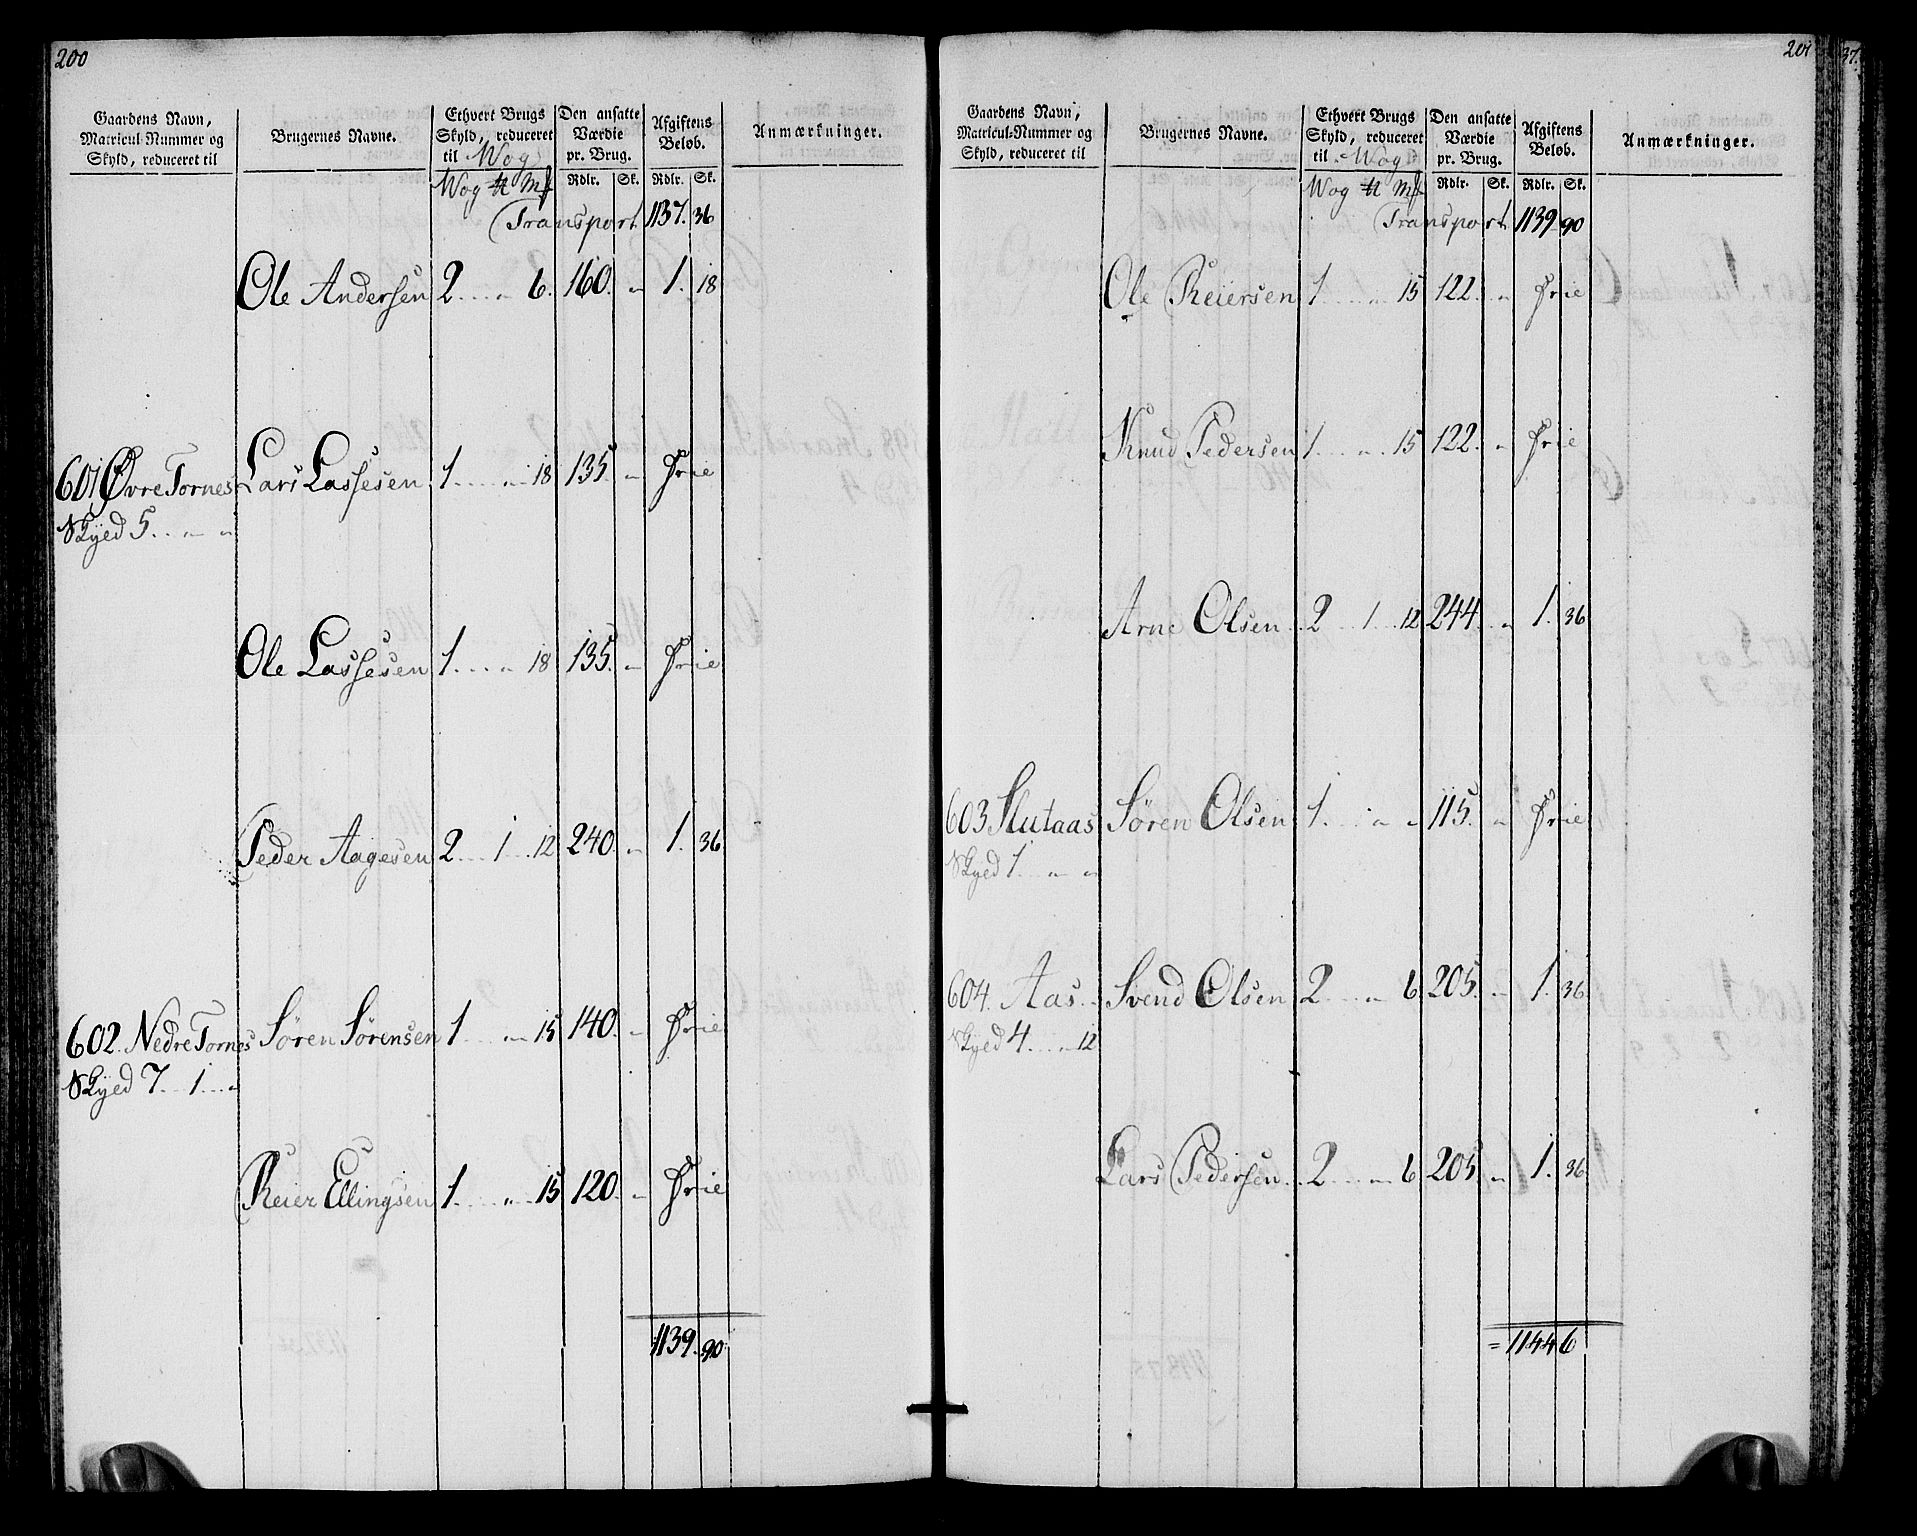 200
Gaardens Navn, Matricul-Nummer og Skyld, reduceret til | Brugernes Navne. | Ethvert Brugs Skyld, reduceret til Wog | Den ansatte Værdie pr. Brug. | Afgiftens Beløb. | Anmærkninger.
Wog ℔ Mk | Rdlr. Sk. | Rdlr. Sk.
Transport 1137. 36
Ole Andersen 2 .... „ 6. 160. „ 1. 18
601 Øvre Tornes Lars Lassesen 1 ..... „ 18 135 „ Frie
Skyed 5. .. „ „
Ole Lassesen 1 .... „ 18 135. „ Frie
Peder Aagesen 2 ... 1 ... 12 240. „ 1. 36
602. Nedre Tornes Søren Sørensen 1 .... „ 15 140. „ Frie
Skyed 7 .. 1 ... „
Reier Ellingsen 1 .... „ 15 120. „ Frie
1139. 90
201
Gaardens Navn, Matricul-Nummer og Skyld, reduceret til | Brugernes Navne. | Ethvert Brugs Skyld, reduceret til Wog | Den ansatte Værdie pr. Brug. | Afgiftens Beløb. | Anmærkninger.
Wog ℔ Mk | Rdlr. Sk. | Rdlr. Sk.
Transport 1139. 90
Ole Reiersen 1 .... „ 15 122. „ Frie
Knud Pedersen 1 .... „ 15 122. „ Frie
Arne Olsen 2 .. 1 .. 12 244. „ 1. 36
603 Slutaas Søren Olsen 1 ... „ „ 115. „ Frie
Skyed 1. .. „ „
604. Aas Svend Olsen 2 .... „ 6 205. „ 1. 36
Skyed 4 .... „ 12
Lars Pedersen 2 .... „ 6 205 „ 1. 36
= 1144 6
37.